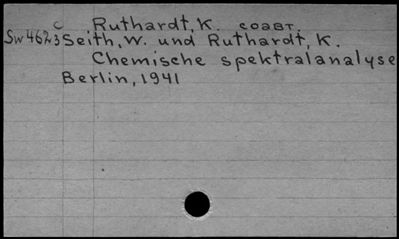 c Ruthardt, K. соавт.
Sw4623 Seith, W. und Ruthardt, K.
Chemische spektralanalyse
Berlin, 1941